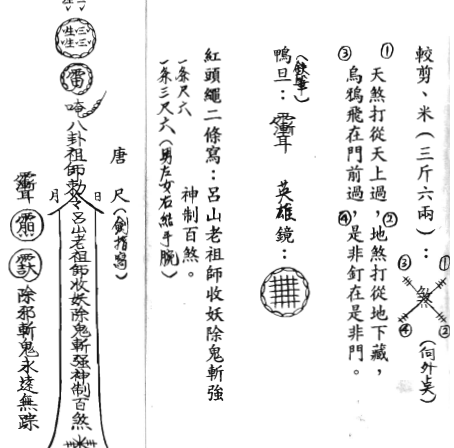 較剪、米(三斤六兩):
① ② ③ ④ 煞
(向外貞)
① 天煞打從天上過,② 地煞打從地下藏,
③ 烏鴉飛在門前過,④ 是非釘在是非門。
鴨旦: 英雄鏡:
(鉄筆)
紅頭繩二條寫:呂山老祖師收妖除鬼斬強
神制百煞。
一条尺六
一条三尺六(男左女右結手腕)
唐 尺(劍指寫)
雷
唵八卦祖師勅令呂山老祖師收妖除鬼斬强神制百煞
日 月
除邪斬鬼永遠無踪